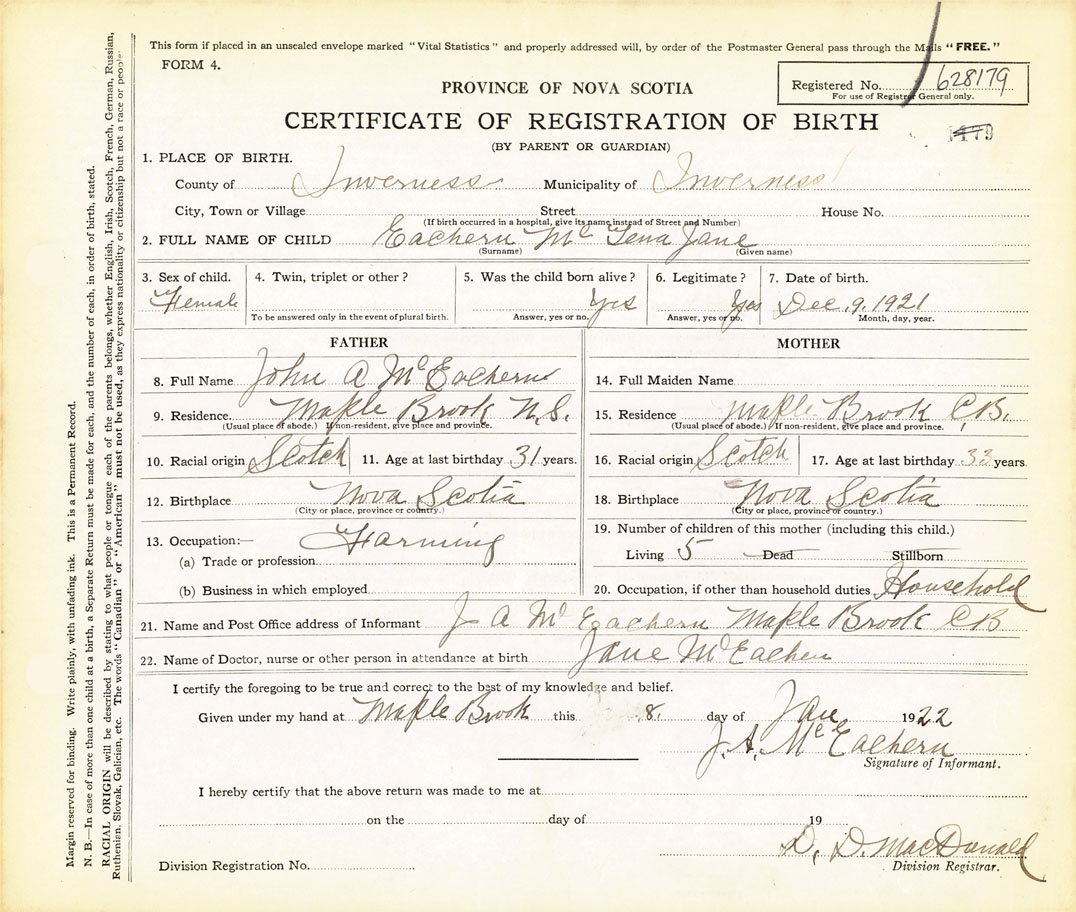 This form if placed in an unsealed envelope marked "Vital Statistics" and properly addressed will, by order of the Postmaster General pass through the Mails "FREE."
FORM 4.
Registered No. 628179
For use of Registrar General only.
PROVINCE OF NOVA SCOTIA
CERTIFICATE OF REGISTRATION OF BIRTH
(BY PARENT OR GUARDIAN)
1. PLACE OF BIRTH.
County of Inverness Municipality of Inverness
City, Town or Village Street House No.
(If birth occurred in a hospital, give its name instead of Street and Number)
2. FULL NAME OF CHILD Eachern Mc Tena Jane
(Surname) (Given name)
3. Sex of child. 4. Twin, triplet or other? 5. Was the child born alive? 6. Legitimate? 7. Date of birth.
Female Yes Yes Dec. 9. 1921
To be answered only in the event of plural birth. Answer, yes or no. Answer, yes or no. Month, day, year.
FATHER
8. Full Name John A McEachern
9. Residence. Maple Brook N.S.
(Usual place of abode.) If non-resident, give place and province.
10. Racial origin Scotch 11. Age at last birthday 31 years.
12. Birthplace Nova Scotia
(City or place, province or country.)
13. Occupation:— Farming
(a) Trade or profession
(b) Business in which employed
MOTHER
14. Full Maiden Name
15. Residence Maple Brook C.B.
(Usual place of abode.) If non-resident, give place and province.
16. Racial origin Scotch 17. Age at last birthday 33 years
18. Birthplace Nova Scotia
(City or place, province or country.)
19. Number of children of this mother (including this child.)
Living 5 Dead Stillborn
20. Occupation, if other than household duties Household
21. Name and Post Office address of Informant J A Mc Eachern Maple Brook CB
22. Name of Doctor, nurse or other person in attendance at birth Jane McEachen
I certify the foregoing to be true and correct to the best of my knowledge and belief.
Given under my hand at Maple Brook this 8. day of Jan 1922
J. A. McEachern
Signature of Informant.
I hereby certify that the above return was made to me at
on the day of 19
D. D. MacDonald
Division Registration No. Division Registrar.
Margin reserved for binding. Write plainly, with unfading ink. This is a Permanent Record.
N. B.—In case of more than one child at a birth, a Separate Return must be made for each, and the number of each, in order of birth, stated.
RACIAL ORIGIN will be described by stating to what people or tongue each of the parents belongs, whether English, Irish, Scotch, French, German, Russian,
Ruthenian, Slovak, Galician, etc. The words "Canadian" or "American" must not be used, as they express nationality or citizenship but not a race or people.